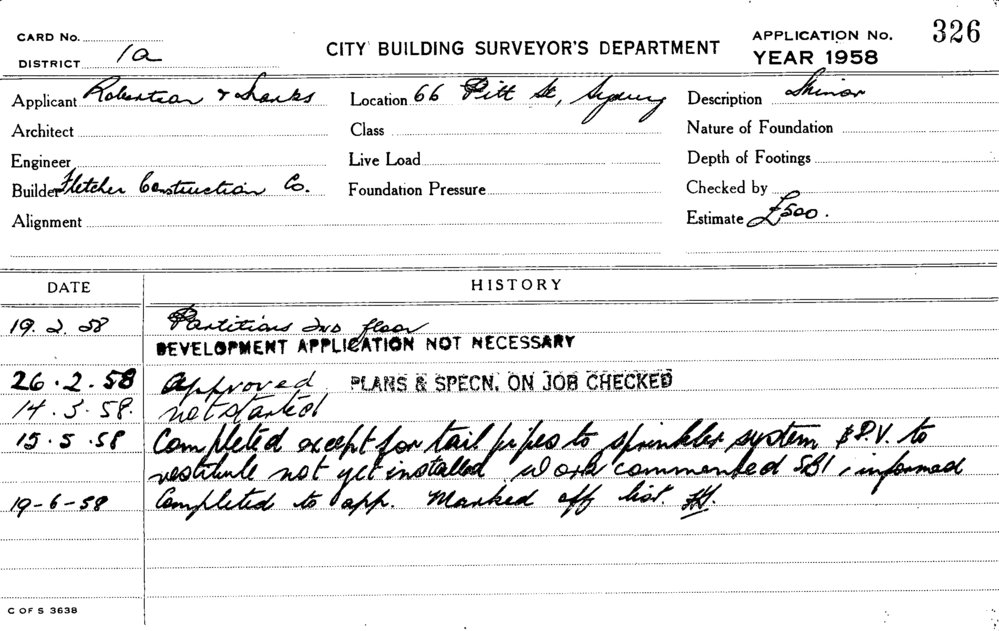 CARD No.
DISTRICT 1a
CITY BUILDING SURVEYOR'S DEPARTMENT
APPLICATION No. 326
YEAR 1958
Applicant Robertson & Shanks Location 66 Pitt St, Sydney Description Minor
Architect Class Nature of Foundation
Engineer Live Load Depth of Footings
Builder Fletcher Construction Co. Foundation Pressure Checked by
Alignment Estimate £500.
DATE HISTORY
19. 2. 58 Partitions 2nd floor
DEVELOPMENT APPLICATION NOT NECESSARY
26. 2. 58 Approved PLANS & SPECN. ON JOB CHECKED
14. 3. 58. not started
15. 5. 58 Completed except for tail pipes to sprinkler system & P.V. to
vestibule not yet installed, work commenced SBI, informed
19-6-58 Completed to app. Marked off list.
C OF S 3638